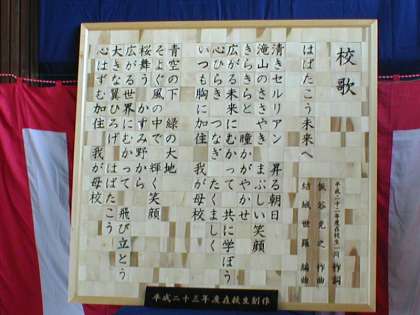 校歌
はばたこう未来へ
平成二十一年度在校生一同 作詞
飯谷克之 作曲
結城世羅 編曲
清きセルリアン 昇る朝日
滝山のささやき まぶしい笑顔
きらきらと 瞳かがやかせ
広がる未来にむかって 共に学ぼう
心ひらき つなぎ たくましく
いつも胸に加住 我が母校
青空の下 緑の大地
そよぐ風の中で 輝く笑顔
桜舞う かすみ野から
広がる世界にむかって 飛び立とう
大きな翼ひろげ はばたこう
心はずむ加住 我が母校
平成二十三年度在校生制作